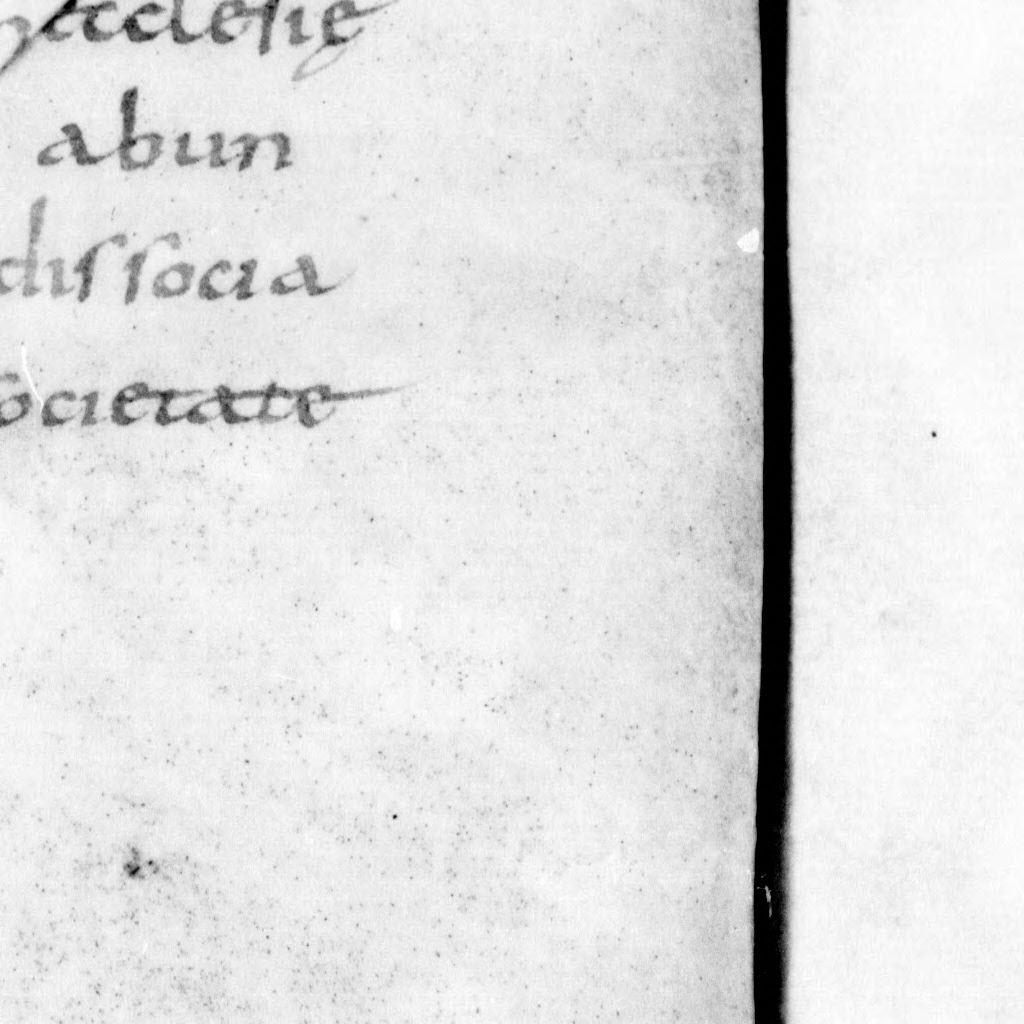 ęcclesię
abun
dissocia
societate